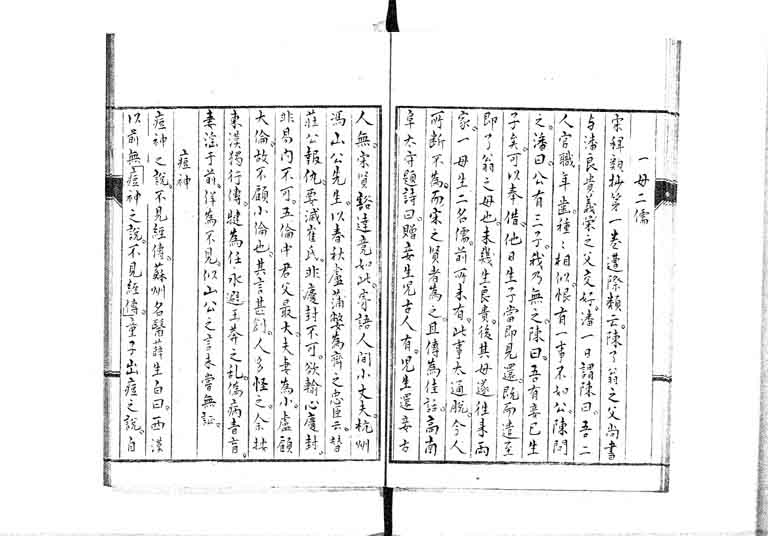 一母二儒
宋稗類抄第一卷遭際類云陳了翁之父尚書
与潘良贵義榮之父交好潘一日謂陳曰吾二
人官職年齒種ゝ相似恨有一事不如公陳問
之潘曰公有三子我乃無之陳曰吾有妾已生
子矣可以奉借他日生子當即見還既而遣至
即了翁之母也未幾生良貴後其母遂往来兩
家一母生二名儒前所未有此事太通脫今人
所断不為而宋之賢者為之且傳為佳話高南
阜太守題詩曰贈妾生兒古人有兒生還妾古
人無宋賢豁達竟如此寄語人间小丈夫杭州
馮山公先生以春秋盧蒲嫳為齊之忠臣云替
莊公報仇要滅崔氏非慶封不可欲輸心慶封
非易内不可五倫中君父最大夫妻為小盧顧
大倫故不顧小倫也其言甚創人多怪之余按
東漢獨行傳犍為任永避王莽之乱偽病青盲
妻淫于前佯為不見似山公之言未嘗無証
痘神
痘神之說不見經傳蘇州名醫薛生白曰西漢
以前無痘神之說不見經傳童子出痘之說自